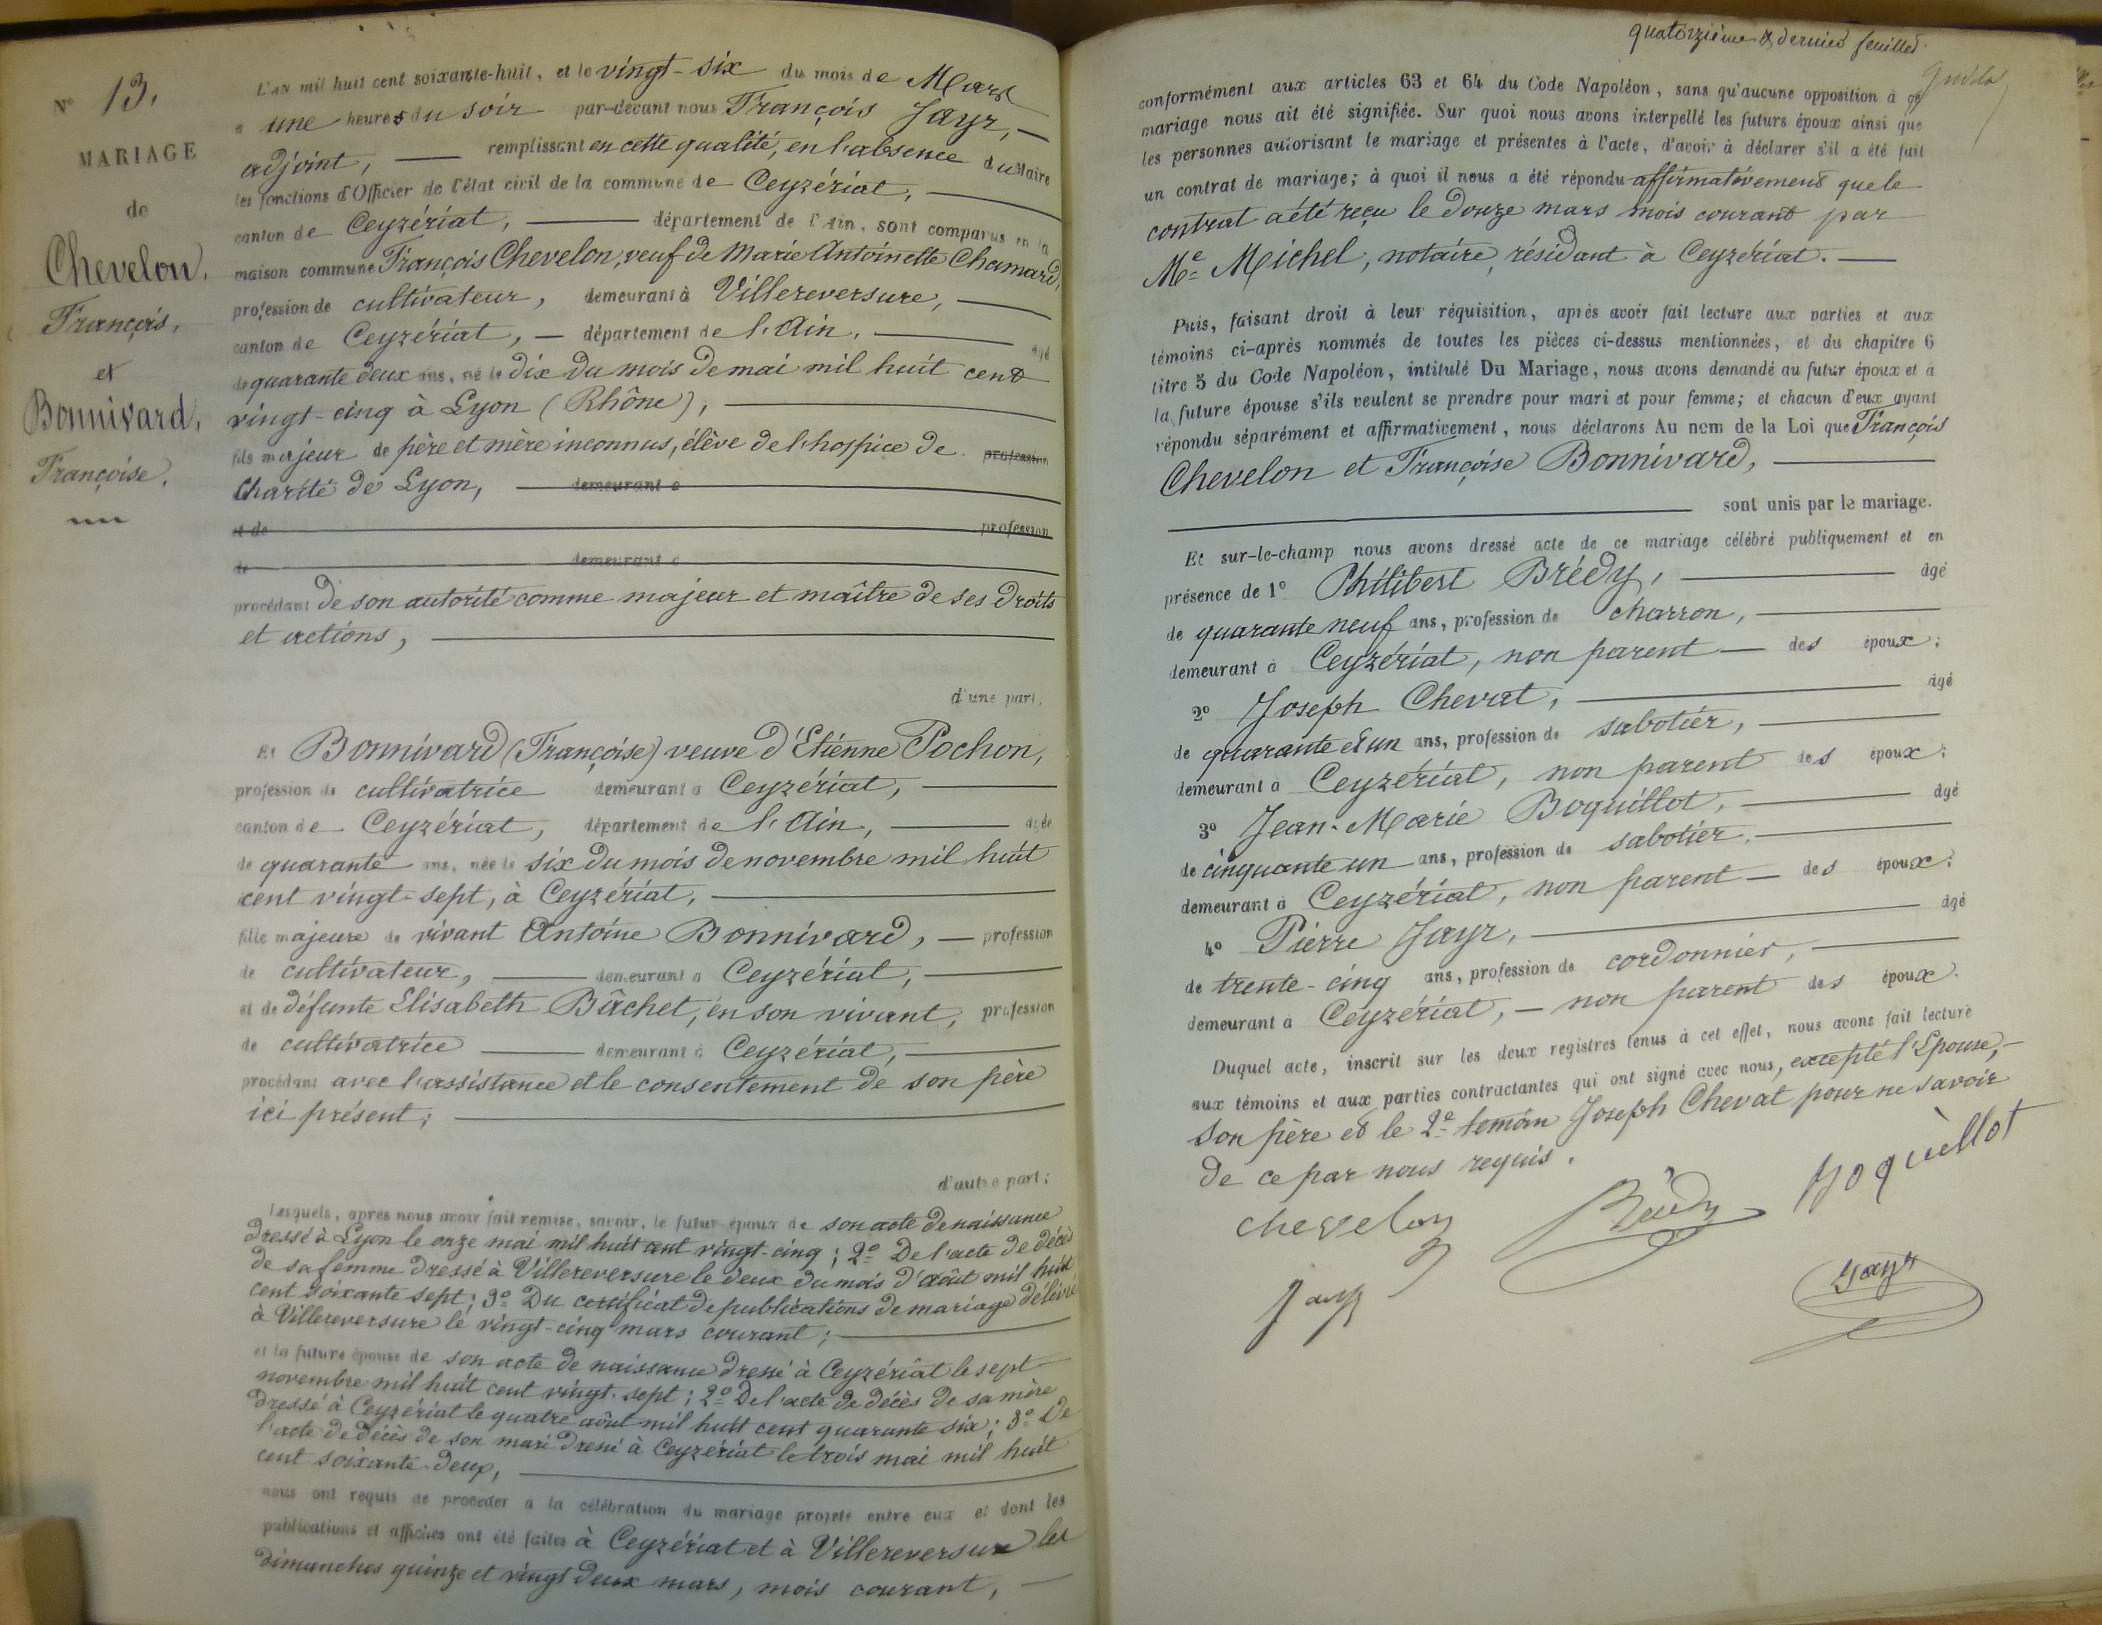 N° 13.
MARIAGE
de
Chevelon,
François,
et
Bonnivard,
Françoise.
L'an mil huit cent soixante-huit, et le vingt-six du mois de Mars
a une heure du soir par-devant nous François Jayr,
adjoint, remplissant en cette qualité, en l'absence du Maire
les fonctions d'Officier de l'état civil de la commune de Ceyzériat,
canton de Ceyzériat, département de l'Ain, sont comparus en la
maison commune François Chevelon, veuf de Marie Antoinette Chamard,
profession de cultivateur, demeurant à Villereversure,
canton de Ceyzériat, département de l'Ain, âgé
de quarante deux ans, né le dix du mois de mai mil huit cent
vingt-cinq à Lyon (Rhône),
fils majeur de père et mère inconnus, élève de l'hospice de profession
Charité de Lyon, demeurant à
et de profession
de demeurant à
procédant de son autorité comme majeur et maître de ses droits
et actions,
d'une part,
Et Bonnivard (Françoise) veuve d'Etienne Pochon,
profession de cultivatrice demeurant à Ceyzériat,
canton de Ceyzériat, département de l'Ain, âgée
de quarante ans, née le six du mois de novembre mil huit
cent vingt-sept, à Ceyzériat,
fille majeure de vivant Antoine Bonnivard, profession
de cultivateur, demeurant à Ceyzériat,
et de défunte Elisabeth Bâchet, en son vivant, profession
de cultivatrice demeurant à Ceyzériat,
procédant avec l'assistance et le consentement de son père
ici présent;
d'autre part;
Lesquels, après nous avoir fait remise, savoir, le futur époux de son acte de naissance
dressé à Lyon le onze mai mil huit cent vingt-cinq; 2° De l'acte de décès
de sa femme dressé à Villereversure le deux du mois d'août mil huit
cent soixante sept; 3° Du certificat de publications de mariage délivré
à Villereversure le vingt-cinq mars courant;
et la future épouse de son acte de naissance dressé à Ceyzériat le sept
novembre mil huit cent vingt-sept; 2° De l'acte de décès de sa mère
dressé à Ceyzériat le quatre août mil huit cent quarante six; 3° De
l'acte de décès de son mari dressé à Ceyzériat le trois mai mil huit
cent soixante-deux,
nous ont requis de procéder à la célébration du mariage projeté entre eux et dont les
publications et affiches ont été faites à Ceyzériat et à Villereversure les
dimanches quinze et vingt deux mars, mois courant,
quatorzième & dernier feuillet.
conformément aux articles 63 et 64 du Code Napoléon, sans qu'aucune opposition à ce
mariage nous ait été signifiée. Sur quoi nous avons interpellé les futurs époux ainsi que
les personnes autorisant le mariage et présentes à l'acte, d'avoir à déclarer s'il a été fait
un contrat de mariage; à quoi il nous a été répondu affirmativement que le
contrat a été reçu le douze mars mois courant par
Me Michel, notaire, résidant à Ceyzériat.
Puis, faisant droit à leur réquisition, après avoir fait lecture aux parties et aux
témoins ci-après nommés de toutes les pièces ci-dessus mentionnées, et du chapitre 6
titre 5 du Code Napoléon, intitulé Du Mariage, nous avons demandé au futur époux et à
la future épouse s'ils veulent se prendre pour mari et pour femme; et chacun d'eux ayant
répondu séparément et affirmativement, nous déclarons Au nom de la Loi que François
Chevelon et Françoise Bonnivard,
sont unis par le mariage.
Et sur-le-champ nous avons dressé acte de ce mariage célébré publiquement et en
présence de 1° Philibert Brédy, âgé
de quarante neuf ans, profession de charron,
demeurant à Ceyzériat, non parent des époux;
2° Joseph Chevat, âgé
de quarante et un ans, profession de sabotier,
demeurant à Ceyzériat, non parent des époux;
3° Jean-Marie Boquillot, âgé
de cinquante un ans, profession de sabotier,
demeurant à Ceyzériat, non parent des époux;
4° Pierre Jayr, âgé
de trente-cinq ans, profession de cordonnier,
demeurant à Ceyzériat, non parent des époux.
Duquel acte, inscrit sur les deux registres tenus à cet effet, nous avons fait lecture
aux témoins et aux parties contractantes qui ont signé avec nous, excepté l'Epouse,
son père et le 2e témoin Joseph Chevat pour ne savoir
de ce par nous requis.
chevelon Brédy Boquillot
Jayr Jayr